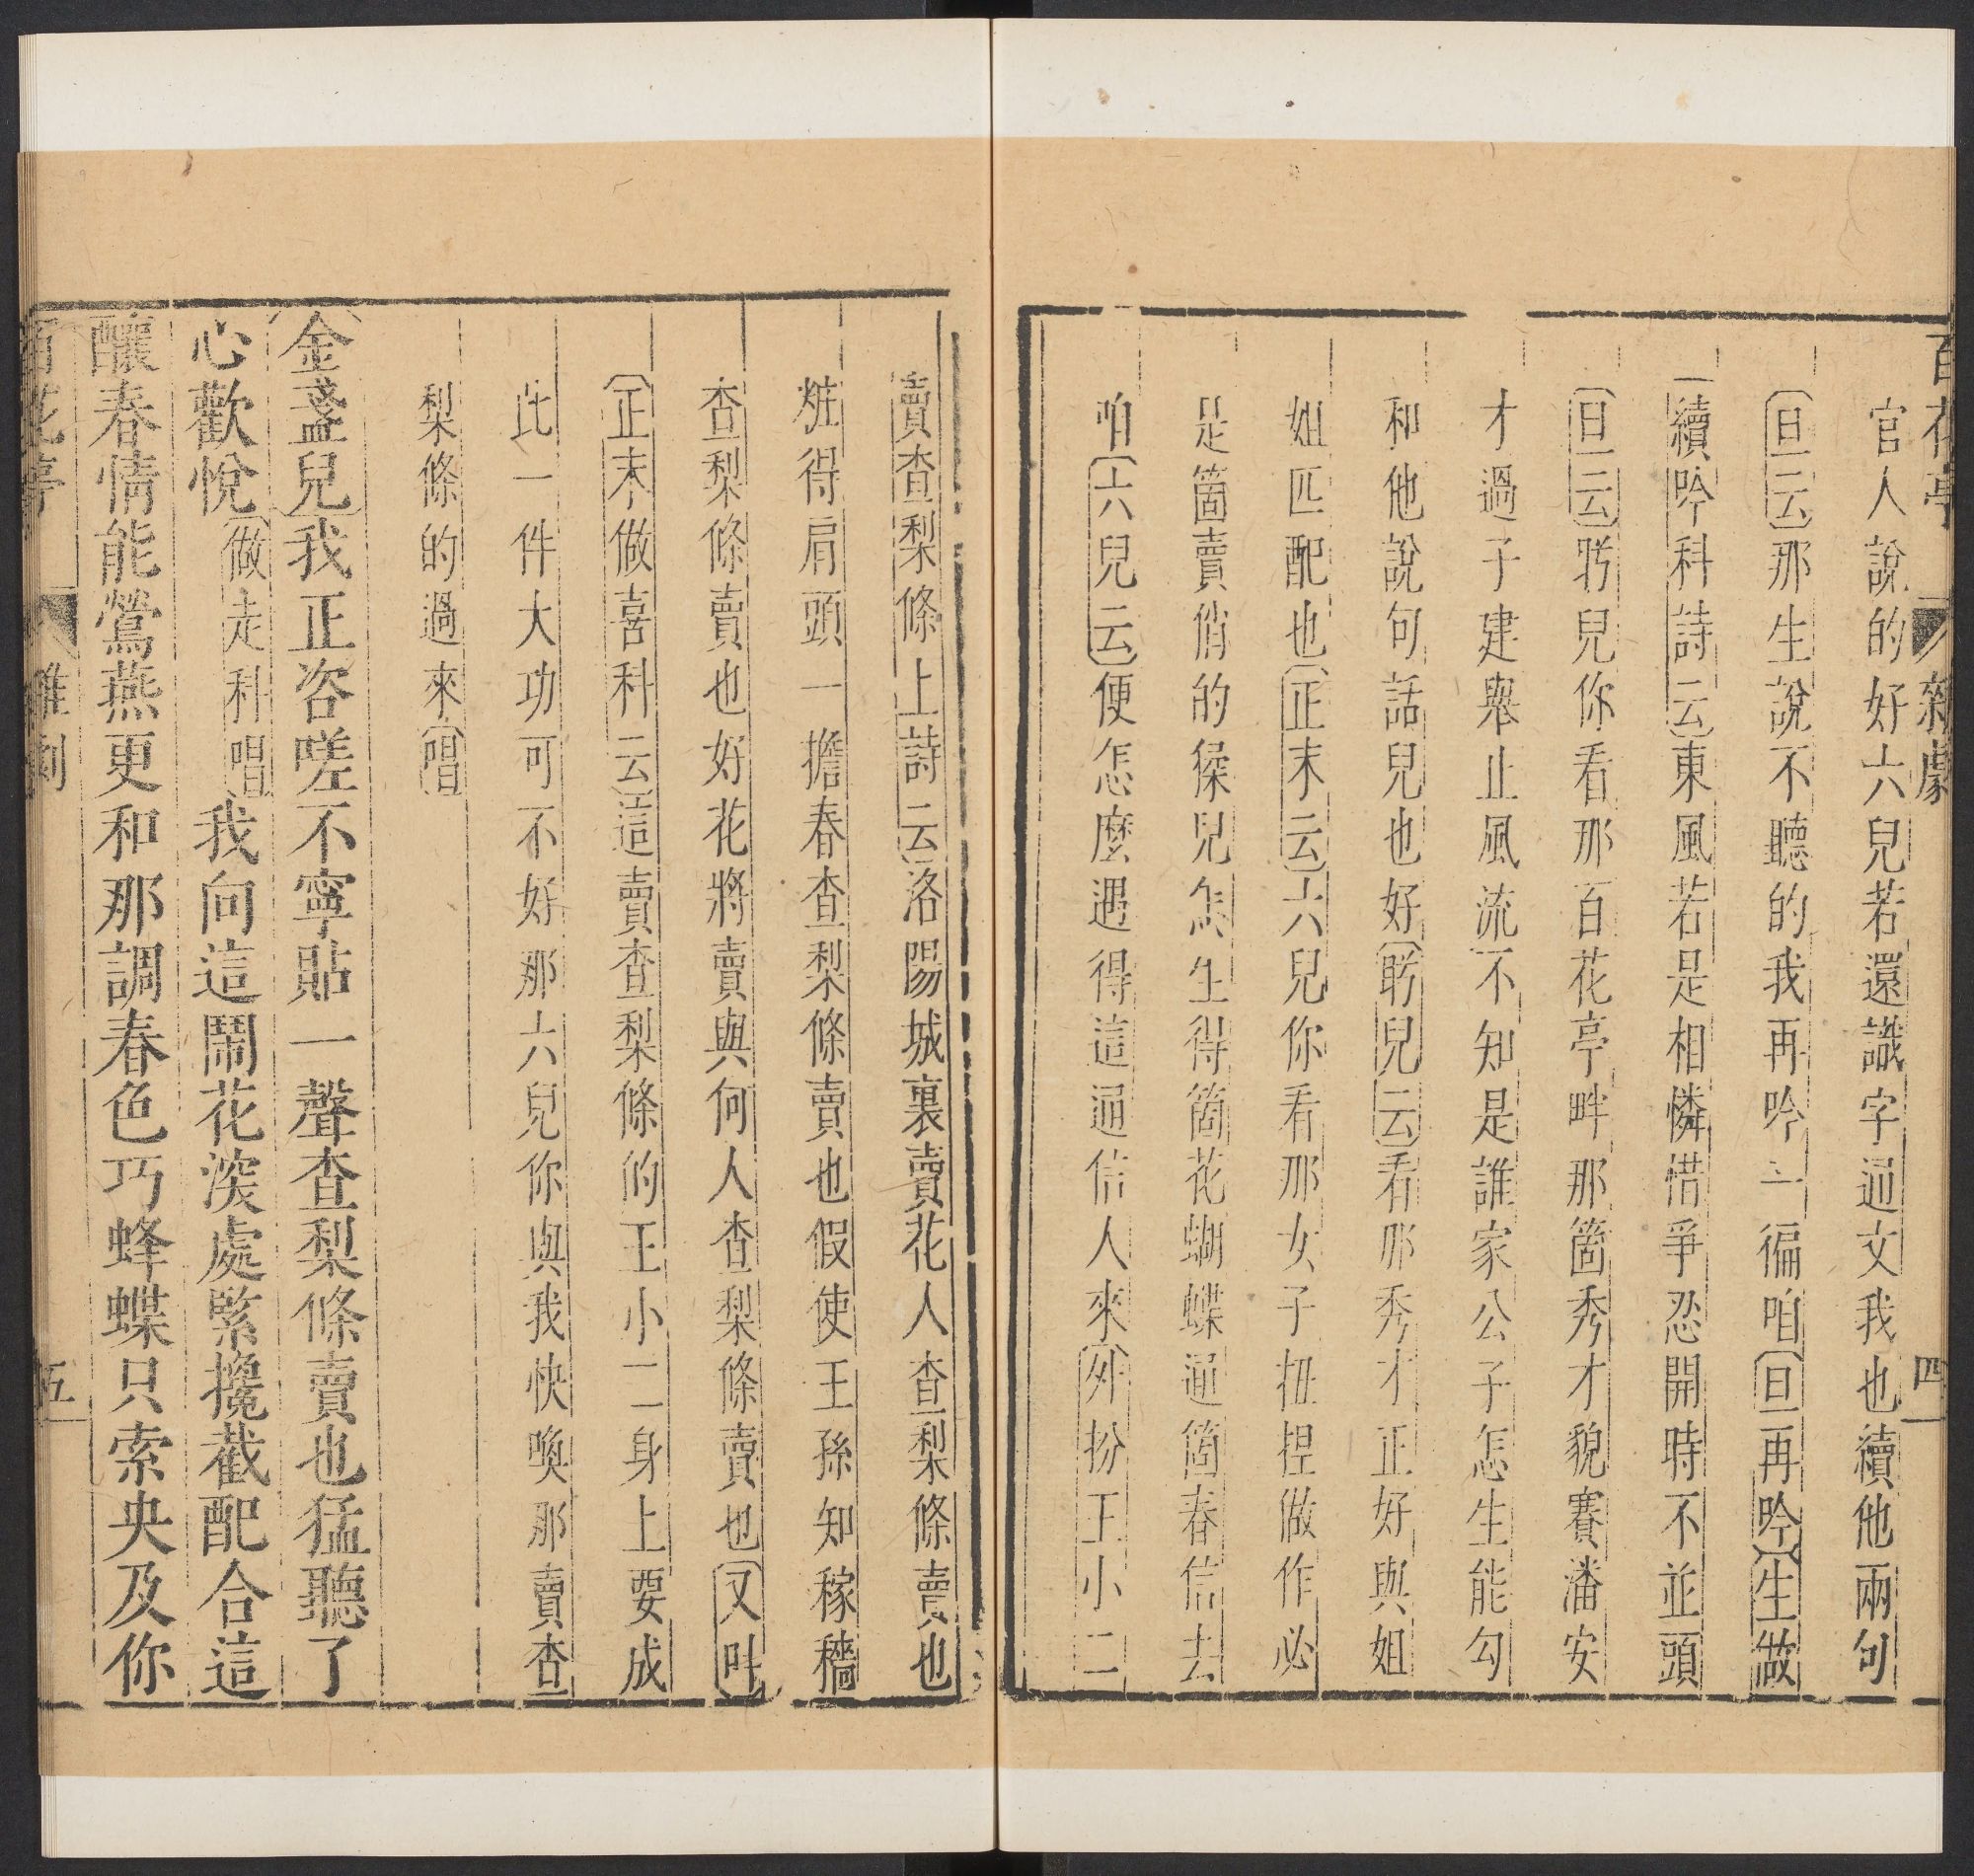 百花亭 雜劇 四
官人說的好六兒若還識字通文我也續他兩句
旦云那生說不聽的我再吟一徧咱旦再吟生做
續吟科詩云東風若是相憐惜爭忍開時不並頭
旦云盻兒你看那百花亭畔那箇秀才貌賽潘安
才過子建舉止風流不知是誰家公子怎生能勾
和他說句話兒也好盻兒云看那秀才正好與姐
姐匹配也正末云六兒你看那女子扭捏做作必
是箇賣俏的猱兒怎生得箇花蝴蝶通箇春信去
咱六兒云便怎麼遇得這通信人來外扮王小二
賣查梨條上詩云洛陽城裏賣花人查梨條賣也
粧得肩頭一擔春查梨條賣也假使王孫知稼穡
查梨條賣也好花將賣與何人查梨條賣也又叫
正末做喜科云這賣查梨條的王小二身上要成
此一件大功可不好那六兒你與我快喚那賣查
梨條的過來唱
金盞兒我正咨嗟不寧貼一聲查梨條賣也猛聽了
心歡悅做走科唱我向這鬧花深處緊攙截配合這
釀春情能鶯燕更和那調春色巧蜂蝶只索央及你
百花亭 雜劇 五